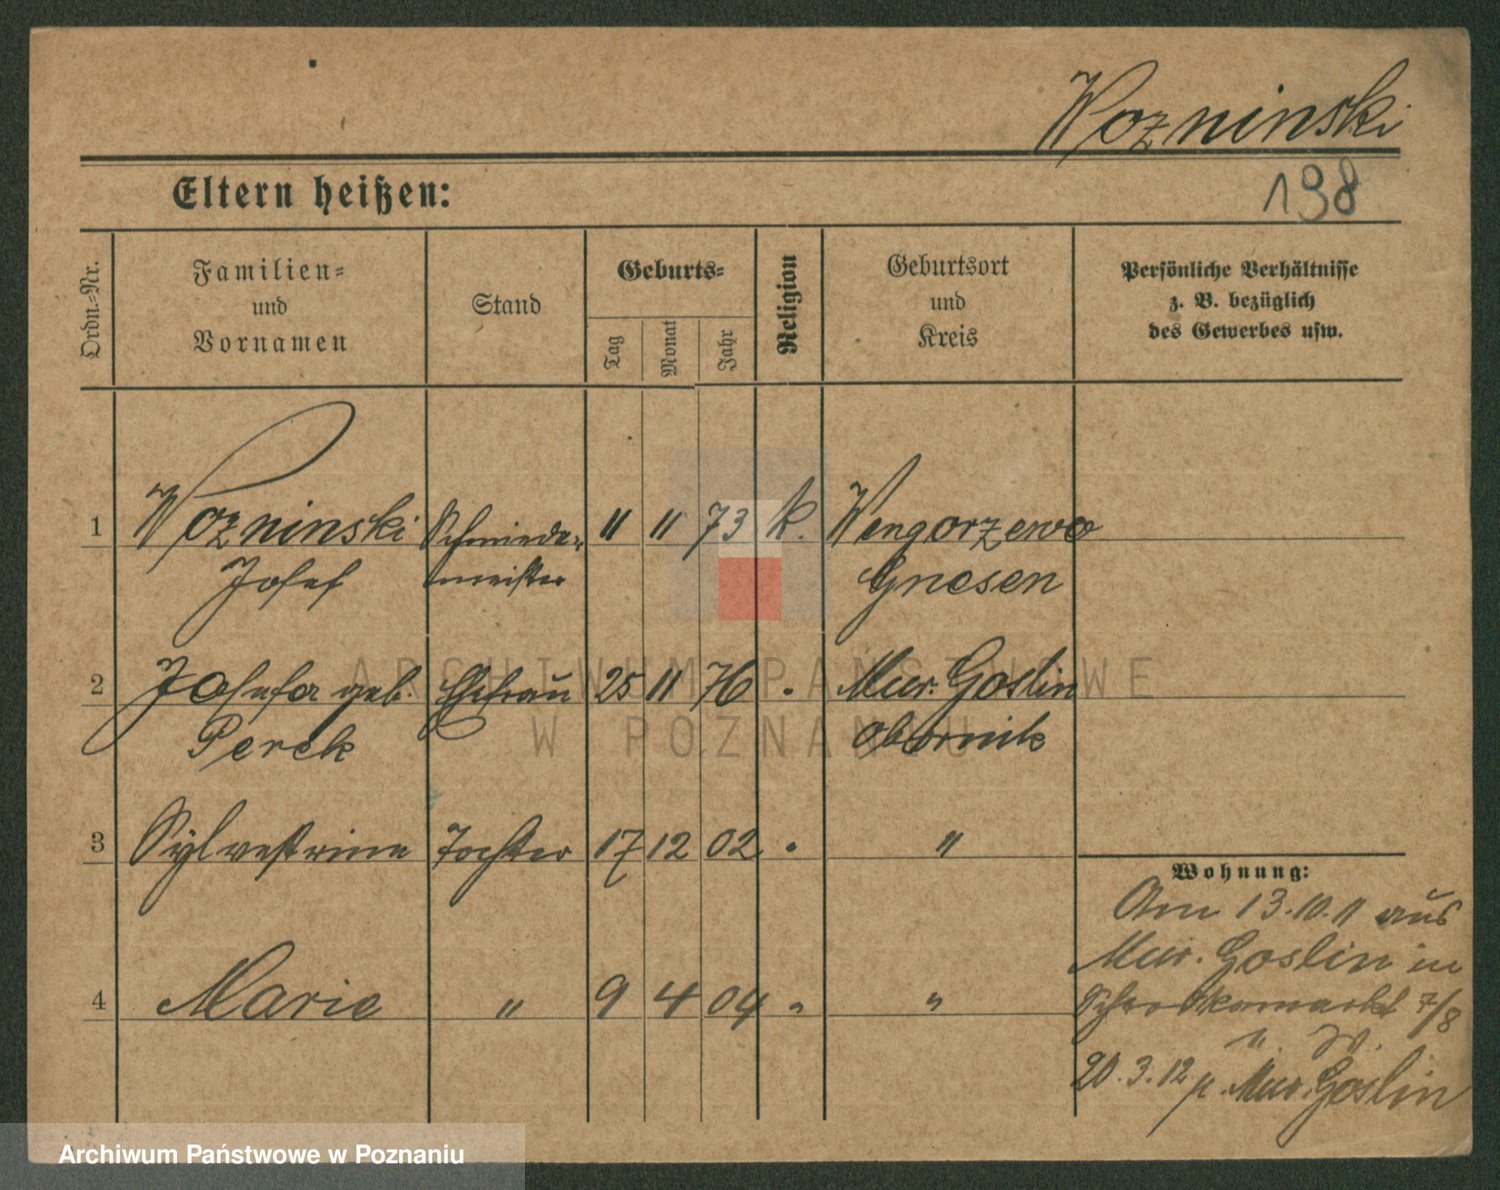 Wozninski
198
Eltern heißen:
Ordn.-Nr.
Familien-
und
Vornamen
Stand
Geburts-
Tag
Monat
Jahr
Religion
Geburtsort
und
Kreis
Persönliche Verhältnisse
z. B. bezüglich
des Gewerbes usw.
1 Wozninski Schmiede- 11 11 73 k. Wengorzewo
Josef meister Gnesen
2 Josefa geb. Ehefrau 25 11 76 " Mur. Goslin
Perek Obornik
3 Sylvestrina Tochter 17 12 02 " "
4 Marie " 9 4 04 " "
Wohnung:
Am 13.10.11 aus
Mur. Goslin in
Schrodkamarkt 7/8
20.3.12 n. Mur. Goslin
ARCHIWUM PAŃSTWOWE
W POZNANIU
Archiwum Państwowe w Poznaniu